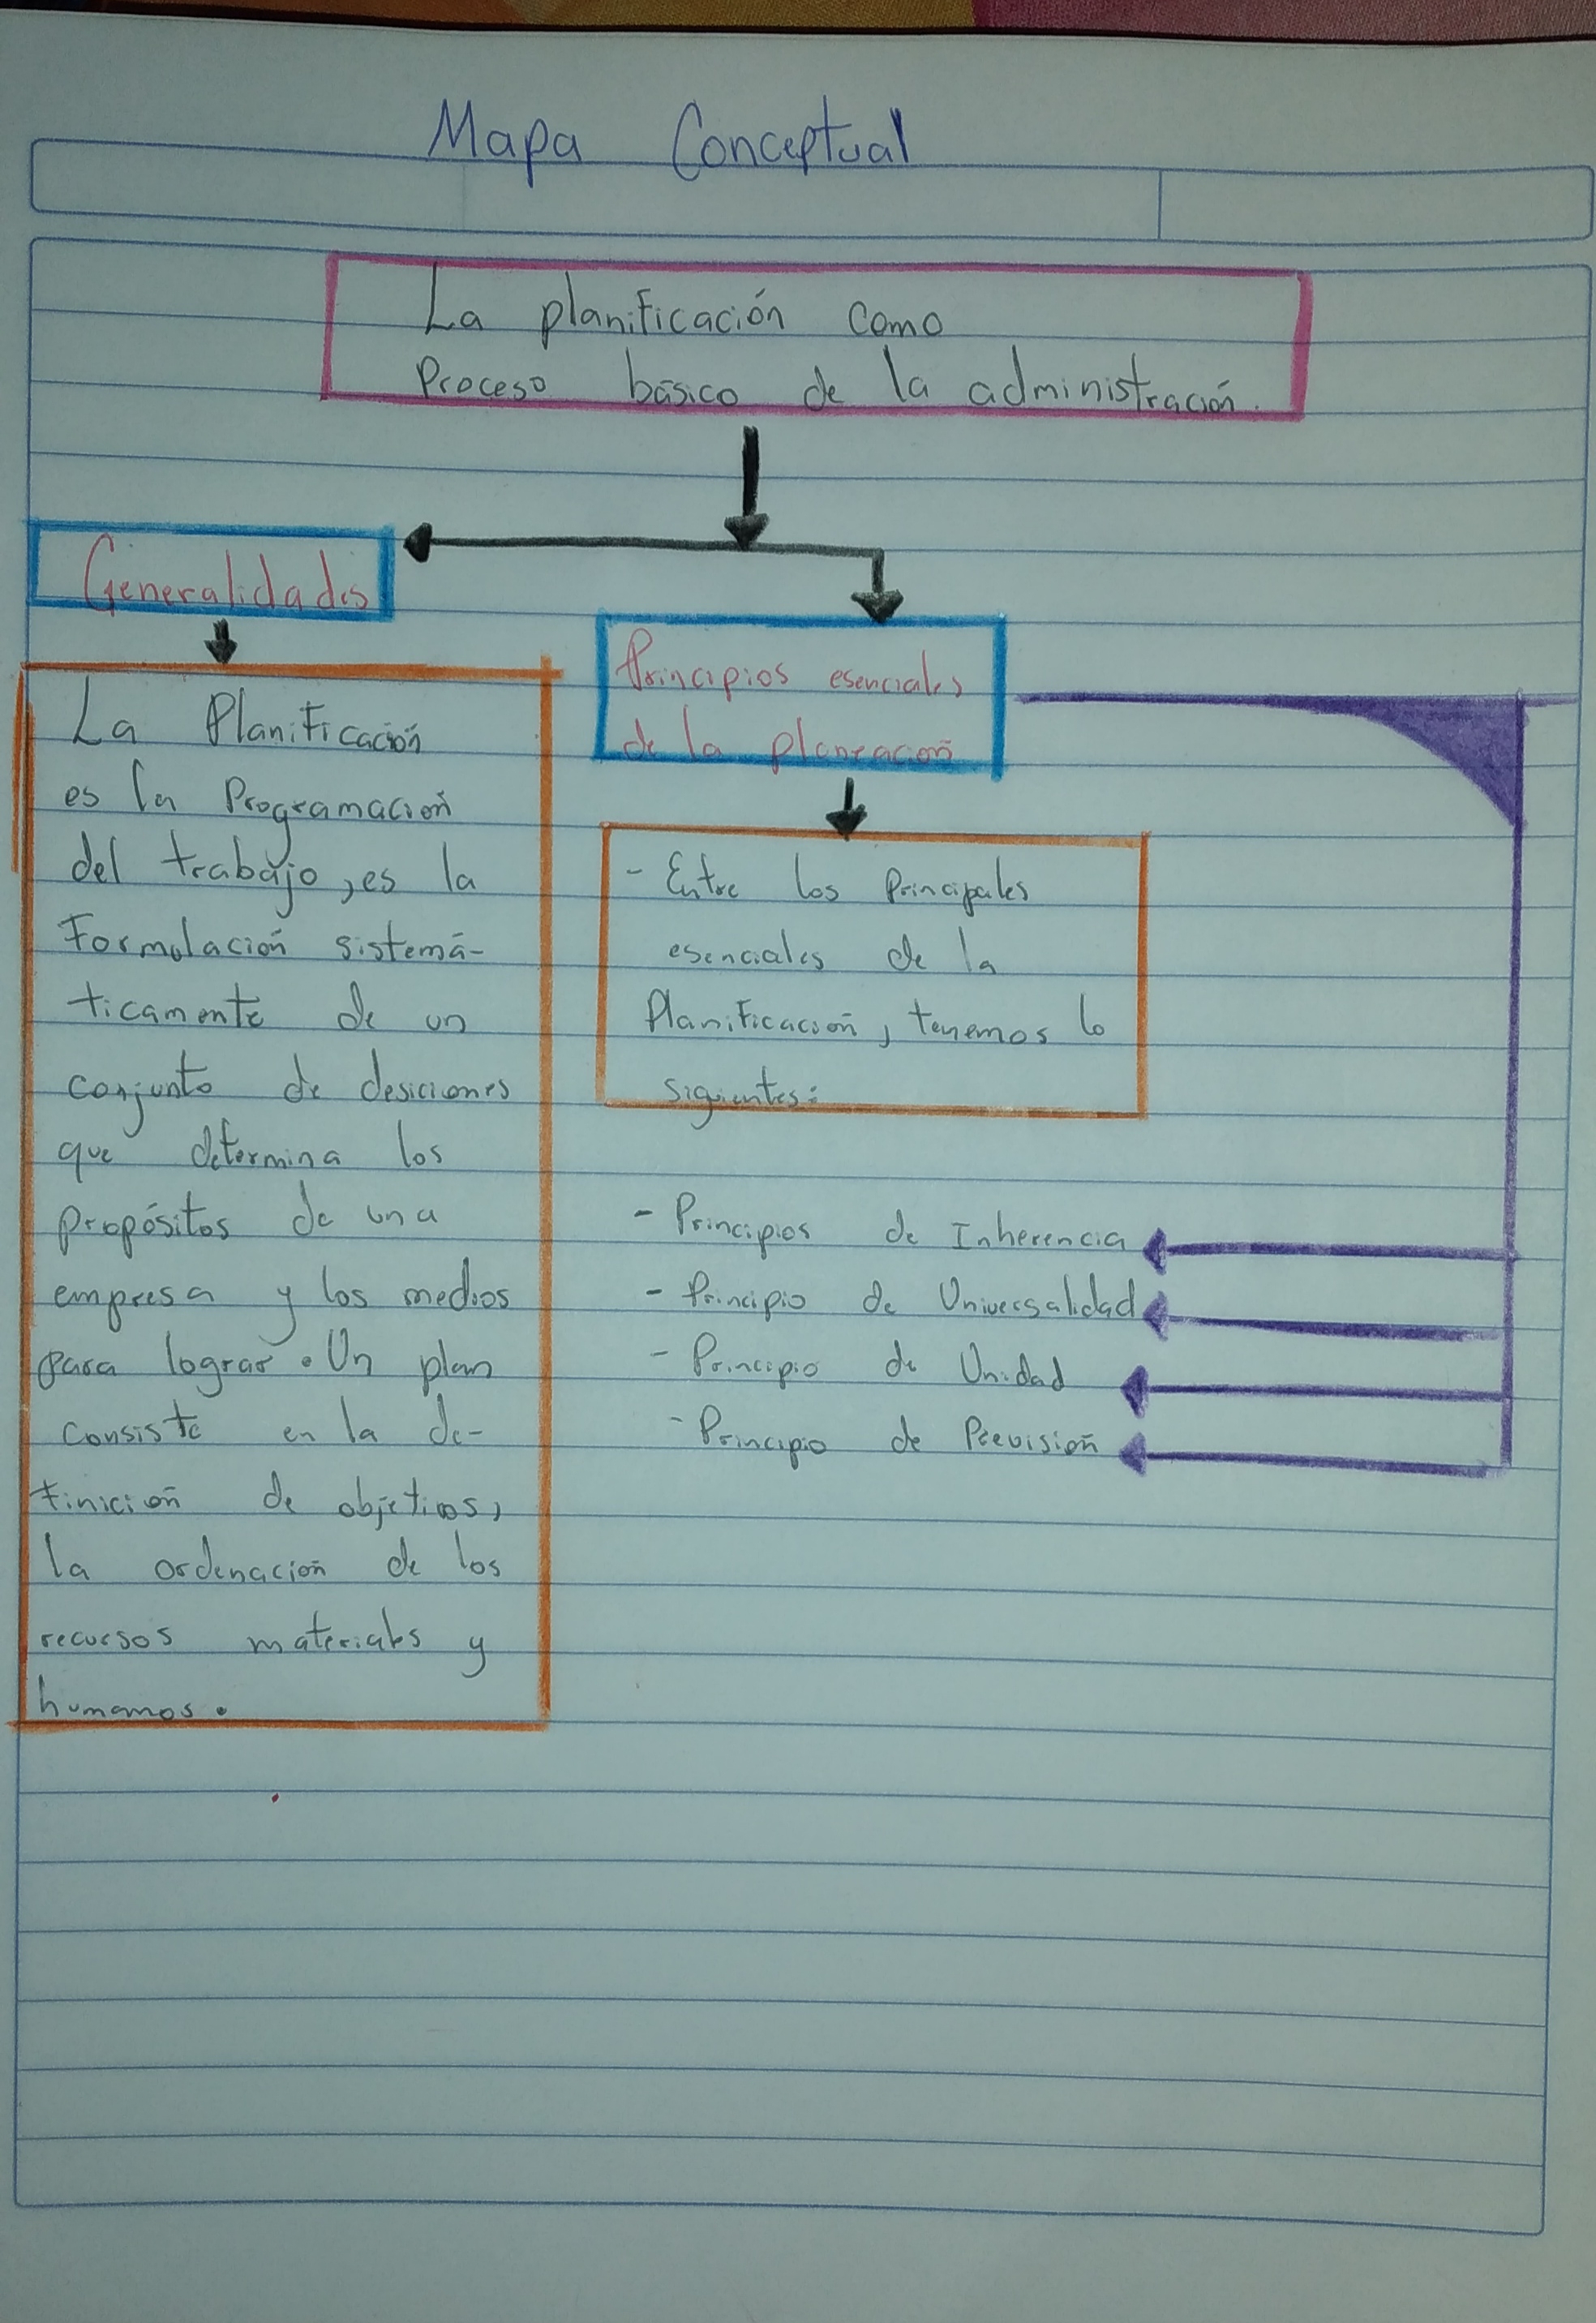 Mapa Conceptual
La planificación como
Proceso básico de la administración.
Generalidades
La Planificación
es la Programación
del trabajo, es la
Formulación sistemá-
ticamente de un
conjunto de desiciones
que determina los
propósitos de una
empresa y los medios
para lograr. Un plan
consiste en la de-
finición de objetivos,
la ordenación de los
recursos materiales y
humanos.
Principios esenciales
de la planeación
- Entre los Principales
esenciales de la
Planificación, tenemos lo
siguientes:
- Principios de Inherencia
- Principio de Universalidad
- Principio de Unidad
- Principio de Previsión